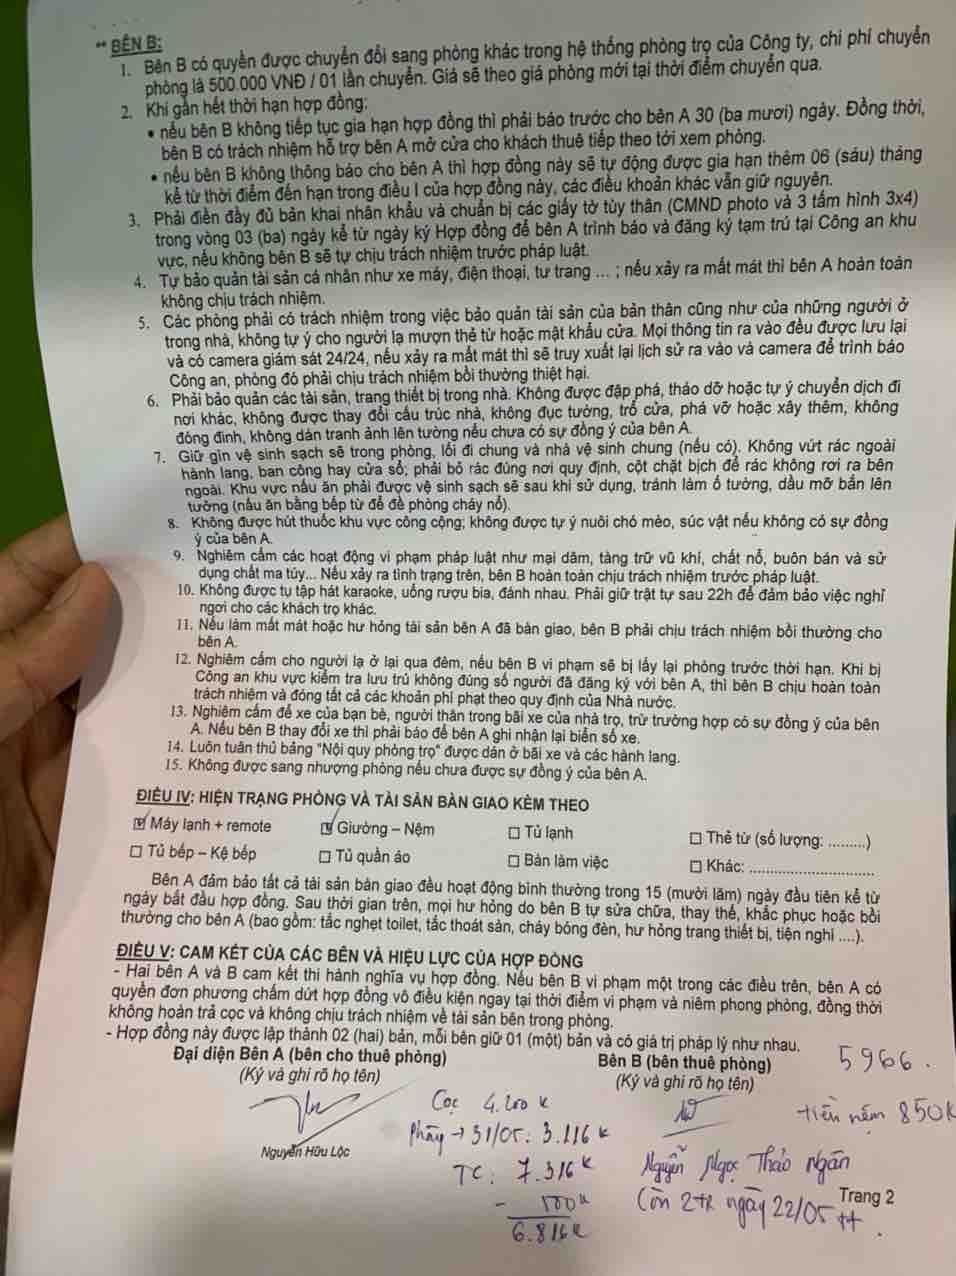 ** BÊN B:
1. Bên B có quyền được chuyển đổi sang phòng khác trong hệ thống phòng trọ của Công ty, chi phí chuyển
phòng là 500.000 VNĐ / 01 lần chuyển. Giá sẽ theo giá phòng mới tại thời điểm chuyển qua.
2. Khi gần hết thời hạn hợp đồng:
• nếu bên B không tiếp tục gia hạn hợp đồng thì phải báo trước cho bên A 30 (ba mươi) ngày. Đồng thời,
bên B có trách nhiệm hỗ trợ bên A mở cửa cho khách thuê tiếp theo tới xem phòng.
• nếu bên B không thông báo cho bên A thì hợp đồng này sẽ tự động được gia hạn thêm 06 (sáu) tháng
kể từ thời điểm đến hạn trong điều I của hợp đồng này, các điều khoản khác vẫn giữ nguyên.
3. Phải điền đầy đủ bản khai nhân khẩu và chuẩn bị các giấy tờ tùy thân (CMND photo và 3 tấm hình 3x4)
trong vòng 03 (ba) ngày kể từ ngày ký Hợp đồng để bên A trình báo và đăng ký tạm trú tại Công an khu
vực, nếu không bên B sẽ tự chịu trách nhiệm trước pháp luật.
4. Tự bảo quản tài sản cá nhân như xe máy, điện thoại, tư trang ... ; nếu xảy ra mất mát thì bên A hoàn toàn
không chịu trách nhiệm.
5. Các phòng phải có trách nhiệm trong việc bảo quản tài sản của bản thân cũng như của những người ở
trong nhà, không tự ý cho người lạ mượn thẻ từ hoặc mật khẩu cửa. Mọi thông tin ra vào đều được lưu lại
và có camera giám sát 24/24, nếu xảy ra mất mát thì sẽ truy xuất lại lịch sử ra vào và camera để trình báo
Công an, phòng đó phải chịu trách nhiệm bồi thường thiệt hại.
6. Phải bảo quản các tài sản, trang thiết bị trong nhà. Không được đập phá, tháo dỡ hoặc tự ý chuyển dịch đi
nơi khác, không được thay đổi cấu trúc nhà, không đục tường, trổ cửa, phá vỡ hoặc xây thêm, không
đóng đinh, không dán tranh ảnh lên tường nếu chưa có sự đồng ý của bên A.
7. Giữ gìn vệ sinh sạch sẽ trong phòng, lối đi chung và nhà vệ sinh chung (nếu có). Không vứt rác ngoài
hành lang, ban công hay cửa sổ; phải bỏ rác đúng nơi quy định, cột chặt bịch để rác không rơi ra bên
ngoài. Khu vực nấu ăn phải được vệ sinh sạch sẽ sau khi sử dụng, tránh làm ố tường, dầu mỡ bắn lên
tường (nấu ăn bằng bếp từ để đề phòng cháy nổ).
8. Không được hút thuốc khu vực công cộng; không được tự ý nuôi chó mèo, súc vật nếu không có sự đồng
ý của bên A.
9. Nghiêm cấm các hoạt động vi phạm pháp luật như mại dâm, tàng trữ vũ khí, chất nổ, buôn bán và sử
dụng chất ma túy... Nếu xảy ra tình trạng trên, bên B hoàn toàn chịu trách nhiệm trước pháp luật.
10. Không được tụ tập hát karaoke, uống rượu bia, đánh nhau. Phải giữ trật tự sau 22h để đảm bảo việc nghỉ
ngơi cho các khách trọ khác.
11. Nếu làm mất mát hoặc hư hỏng tài sản bên A đã bàn giao, bên B phải chịu trách nhiệm bồi thường cho
bên A.
12. Nghiêm cấm cho người lạ ở lại qua đêm, nếu bên B vi phạm sẽ bị lấy lại phòng trước thời hạn. Khi bị
Công an khu vực kiểm tra lưu trú không đúng số người đã đăng ký với bên A, thì bên B chịu hoàn toàn
trách nhiệm và đóng tất cả các khoản phí phạt theo quy định của Nhà nước.
13. Nghiêm cấm để xe của bạn bè, người thân trong bãi xe của nhà trọ, trừ trường hợp có sự đồng ý của bên
A. Nếu bên B thay đổi xe thì phải báo để bên A ghi nhận lại biển số xe.
14. Luôn tuân thủ bảng "Nội quy phòng trọ" được dán ở bãi xe và các hành lang.
15. Không được sang nhượng phòng nếu chưa được sự đồng ý của bên A.
ĐIỀU IV: HIỆN TRẠNG PHÒNG VÀ TÀI SẢN BÀN GIAO KÈM THEO
☑ Máy lạnh + remote ☑ Giường – Nệm ☐ Tủ lạnh ☐ Thẻ từ (số lượng: .........)
☐ Tủ bếp – Kệ bếp ☐ Tủ quần áo ☐ Bàn làm việc ☐ Khác: ____________
Bên A đảm bảo tất cả tài sản bàn giao đều hoạt động bình thường trong 15 (mười lăm) ngày đầu tiên kể từ
ngày bắt đầu hợp đồng. Sau thời gian trên, mọi hư hỏng do bên B tự sửa chữa, thay thế, khắc phục hoặc bồi
thường cho bên A (bao gồm: tắc nghẹt toilet, tắc thoát sàn, cháy bóng đèn, hư hỏng trang thiết bị, tiện nghi ....).
ĐIỀU V: CAM KẾT CỦA CÁC BÊN VÀ HIỆU LỰC CỦA HỢP ĐỒNG
- Hai bên A và B cam kết thi hành nghĩa vụ hợp đồng. Nếu bên B vi phạm một trong các điều trên, bên A có
quyền đơn phương chấm dứt hợp đồng vô điều kiện ngay tại thời điểm vi phạm và niêm phong phòng, đồng thời
không hoàn trả cọc và không chịu trách nhiệm về tài sản bên trong phòng.
- Hợp đồng này được lập thành 02 (hai) bản, mỗi bên giữ 01 (một) bản và có giá trị pháp lý như nhau.
Đại diện Bên A (bên cho thuê phòng) Bên B (bên thuê phòng) 5966.
(Ký và ghi rõ họ tên) (Ký và ghi rõ họ tên)
Cọc 4.200 k tiền nệm 850k
→ 31/05: 3.116 k
Nguyễn Hữu Lộc
TC: 7.316 k Nguyễn Ngọc Thảo Ngân
- 500k Còn 2tr ngày 22/05 tt.
Trang 2
6.816k